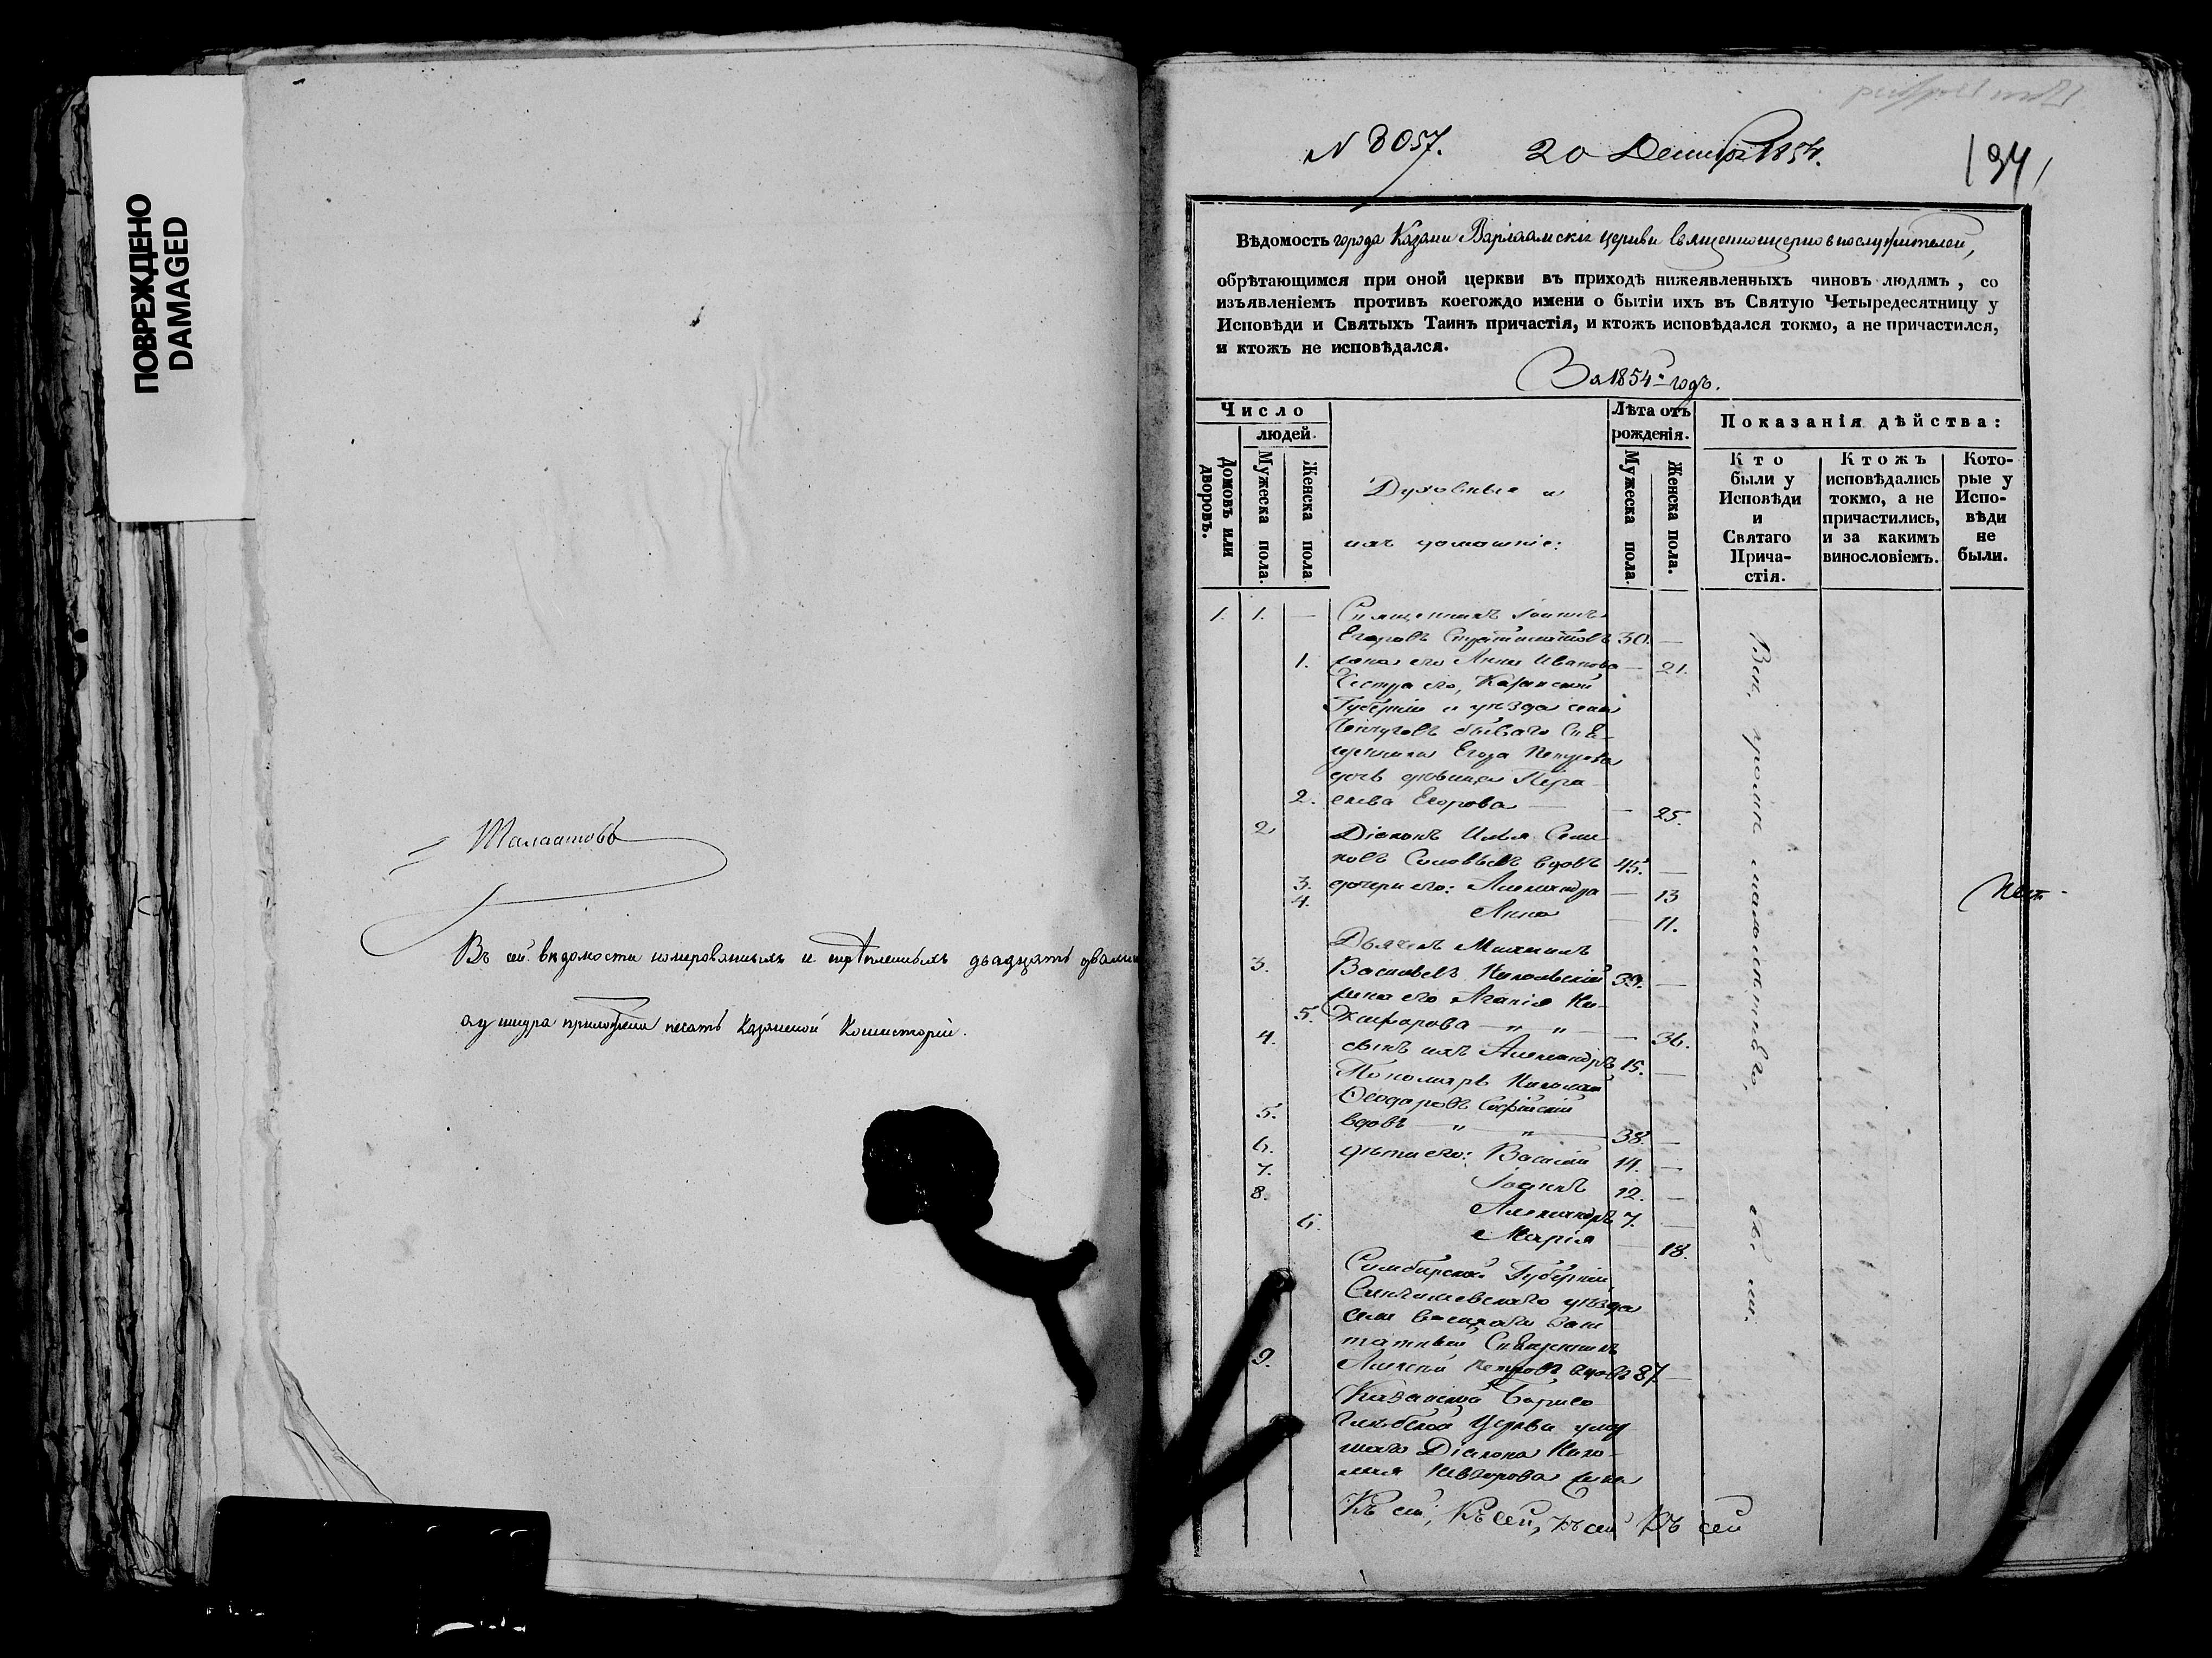 ПОВРЕЖДЕНО
DAMAGED
Въ сей ведомости номерованныхъ и скрѣпленныхъ двадцать два листа
а у шнура приложена печать Казанской Консисторіи.
N 3057. 20 Декабря 1854.
194
Вѣдомость города Казани Варлаамскія церкви священноцерковнослужителей,
обрѣтающимся при оной церкви въ приходѣ нижеявленныхъ чиновъ людямъ, со
изъявленіемъ противъ коегождо имени о бытіи ихъ въ Святую Четыредесятницу у
Исповѣди и Святыхъ Таинъ причастія, и ктожъ исповѣдался токмо, а не причастился,
и ктожъ не исповѣдался.
За 1854й годъ.
Число
людей.
Домовъ или дворовъ.
Мужеска пола.
Женска пола
Духовные и
ихъ домашніе:
Лѣта отъ
рожденія.
Мужеска пола.
Женска пола.
Показанія дѣйства:
Кто
были у
Исповѣди
и
Святаго
Прича-
стія.
Ктожъ
исповѣдались
токмо, а не
причастились,
и за какимъ
винословіемъ.
Кото-
рые у
Испо-
вѣди
не
были.
1. 1. — Священникъ Іоаннъ
Егоровъ 30. —
1. жена его Анна Иванова — 21.
Сестра его, Казанской
Губерніи и уѣзда села
бывшаго Свя-
щенника Егора Петрова
дочь дѣвица Пера-
2. скева Егорова — — 25.
2. Діаконъ Илья Семе-
новъ Соловьевъ вдовъ 45. —
3. дочери его: Александра — 13
4. Анна — 11.
Дьячекъ Михаилъ
3. Васильевъ Никольскій 39. —
жена его Агапія Ни-
5. кифорова — " — " — 36.
4. сынъ ихъ Александръ 15. —
Пономарь Николай
Ѳеодоровъ Софійскій
5. вдовъ — " — " — 38. —
6. дѣти его: Василій 14. —
7. Іоаннъ 12. —
8. Александръ 7. —
6. Марія — 18.
Симбирской Губерніи
уѣзда
села заш-
татный Священникъ
9. Алексій Петровъ вдовъ 87 —
Казанской Борисо
глѣбской Церкви умер
шаго Діакона Нико-
лая жена
Къ сей, Къ сей, Къ сей Къ сей
Всѣ, кромѣ малолѣтнѣго, были.
Нѣтъ